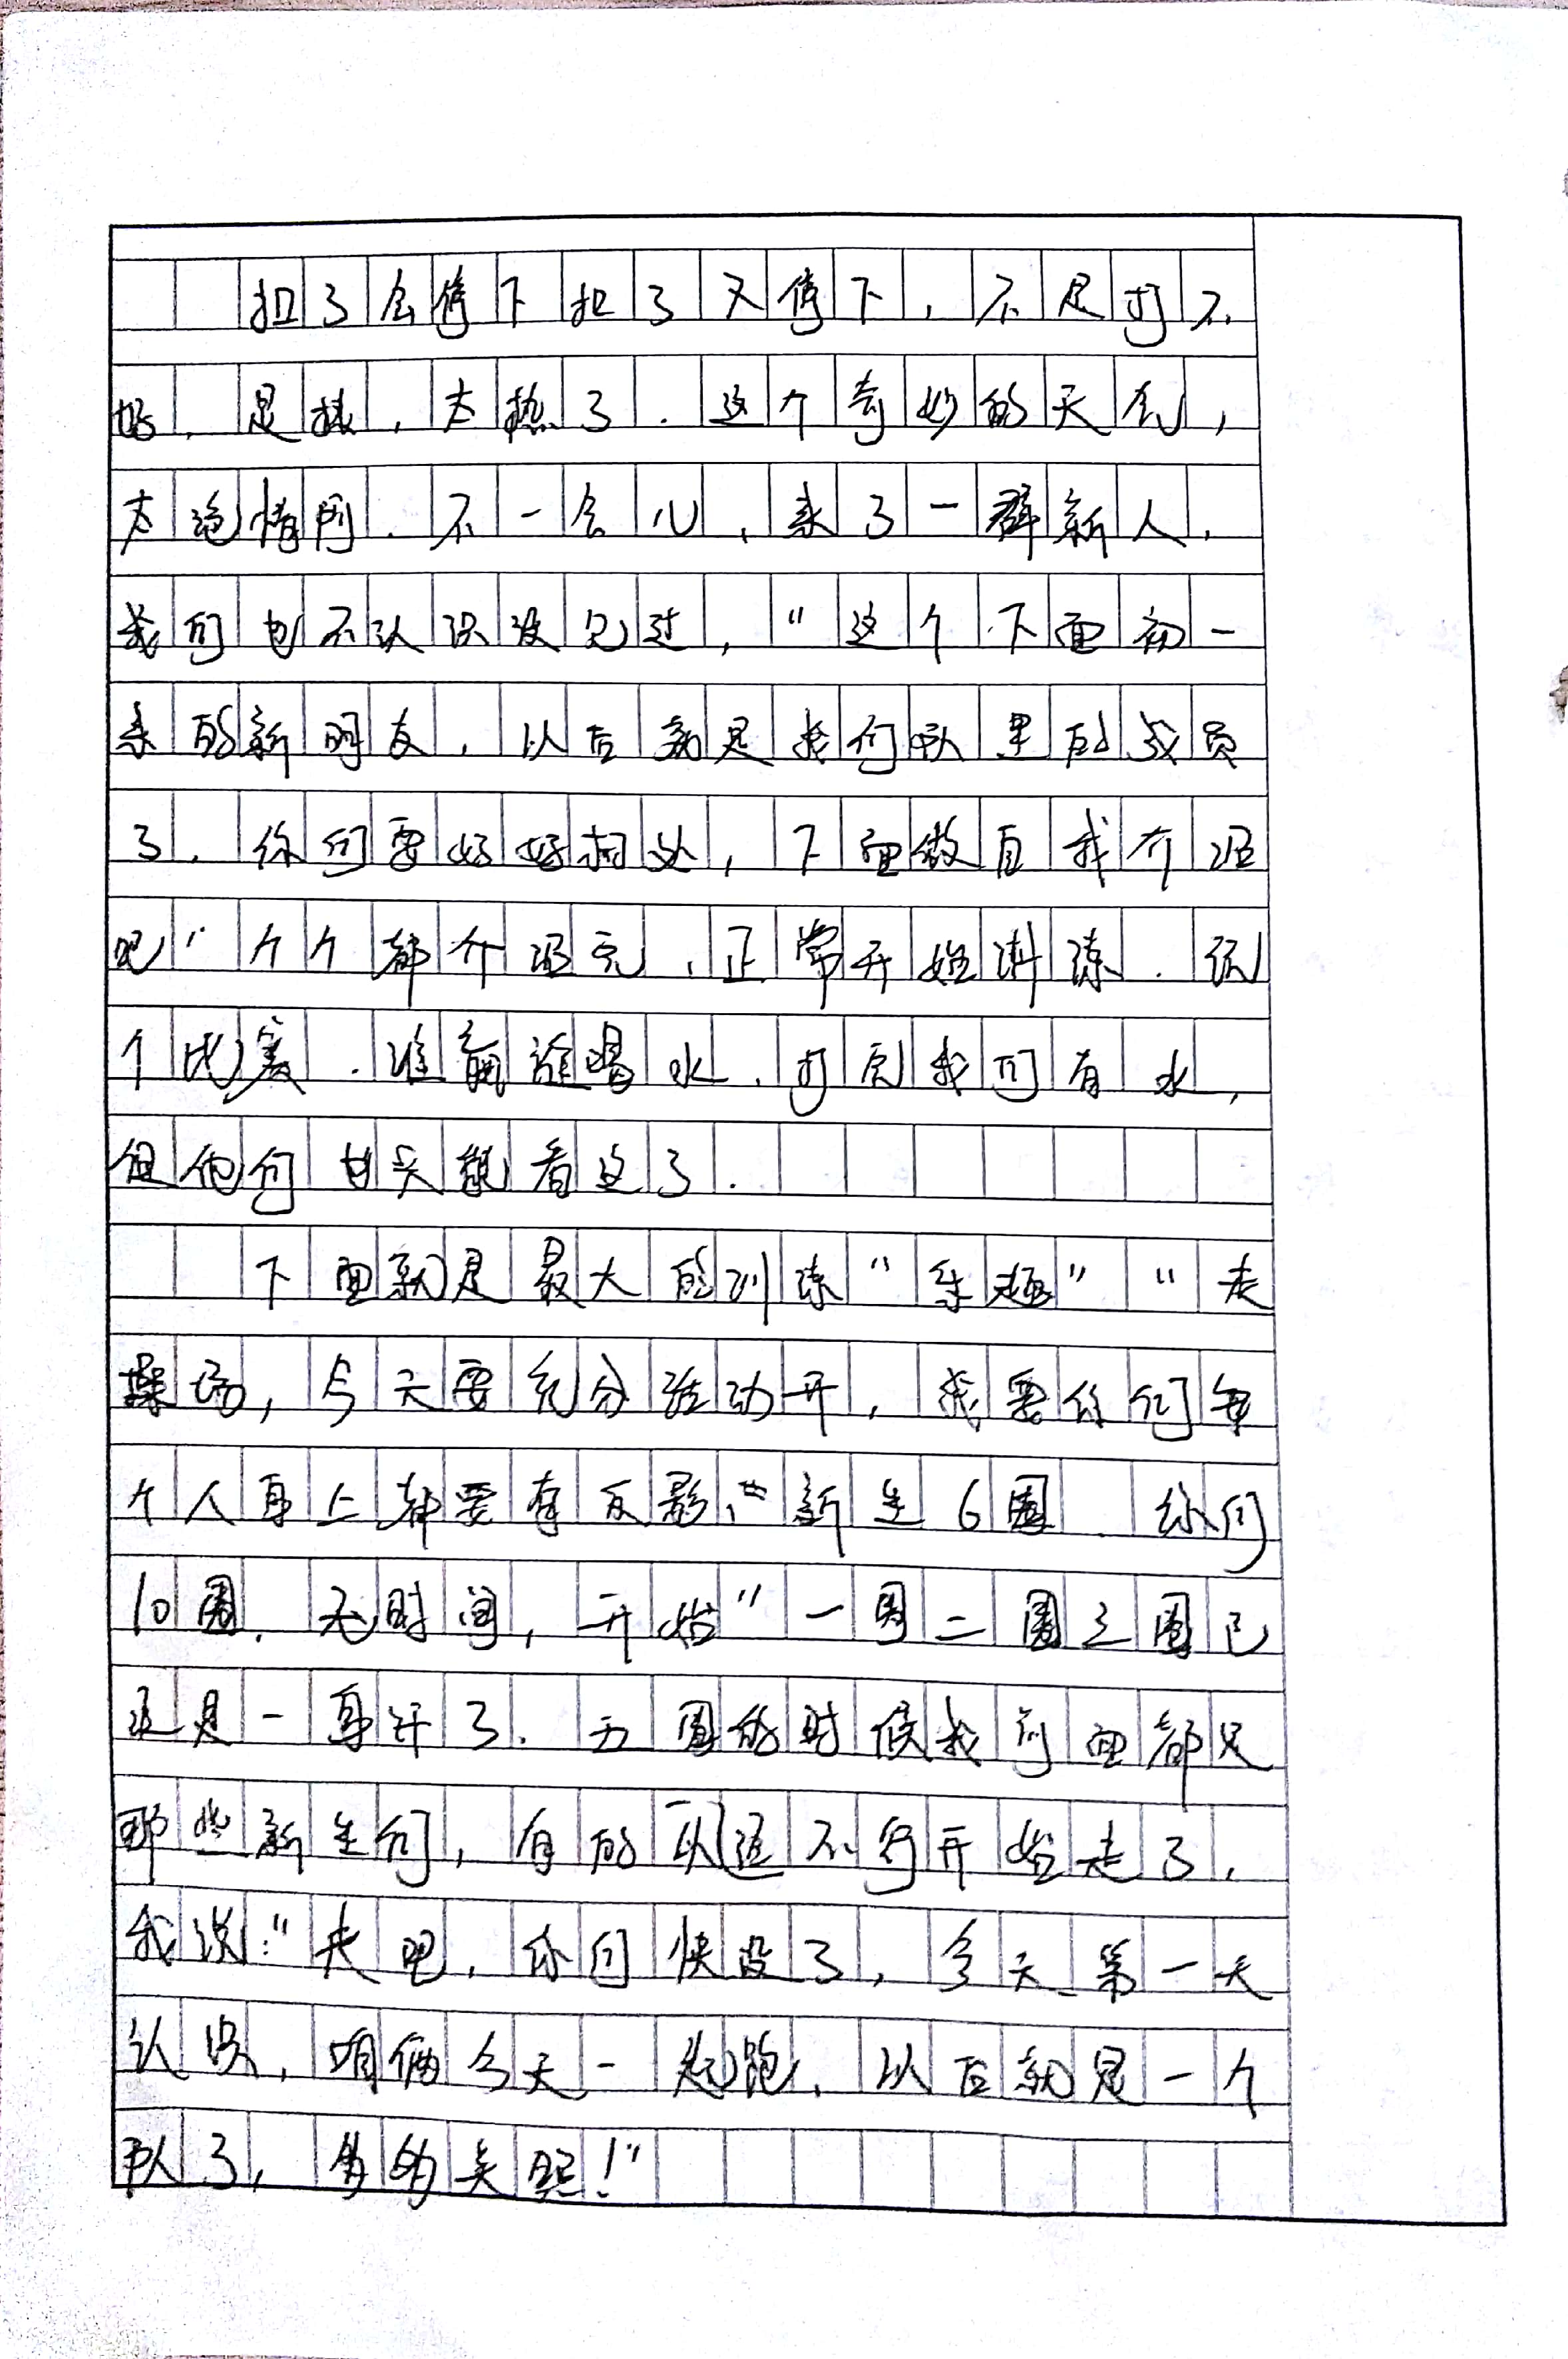 扣了会停下扣了又停下，不是打不
好，是热，太热了．这个奇妙的天气，
太绝情网．不一会儿，来了一群新人，
我们也不认识没见过，“这个下面初一
来的新朋友，以后就是我们队里的成员
了．你们要好好相处，下面做自我介绍
吧”个个都介绍完，正常开始训练．
个比赛．谁赢谁喝水．打完我们有水，
但他们 就看这了．
下面就是最大的训练“乐趣”“走
操场，今天要充分活动开，我要你们每
个人身上都要有反影，”新生6圈 你们
10圈．无时间，开始”一圈二圈三圈已
还是一身汗了．五圈的时候我前面都是
那些新生们，有的 不行开始走了，
我说：“走吧，你们快没了，今天第一天
认识，咱俩今天一起跑，以后就是一个
队了，多的关照！”